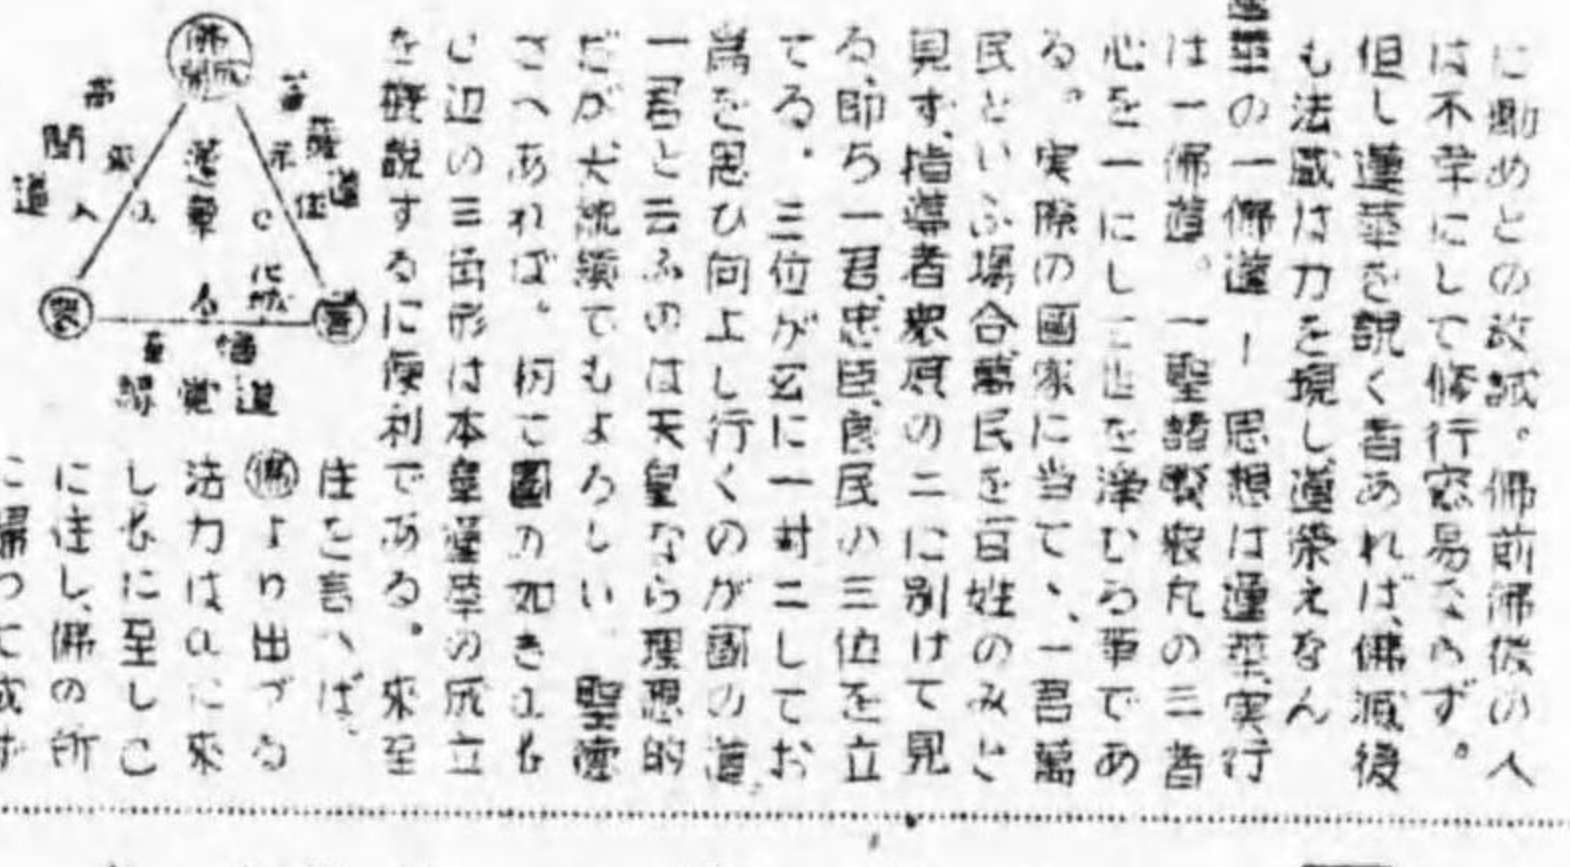 に勤めとの故誡。佛前佛後の人
は不挙にして修行容易ならず。
但し蓮華を説く者あれば、佛滅後
も法威は力を現し、道栄えなん
華の一佛道ー思想は蓮華、実行
は一佛道。一聖諸賢衆凡の三者
心を一にして世を浄むる事であ
る。実際の國家に当て、一君萬
民といふ場合萬民を百姓のみと
見ず、指導者衆庶の二に別けて見
る、即ち一君、忠臣、良民の三位を立
てる。三位が互に一対二してお
為を思ひ向上し行くのが國の道、
一君と云ふのは天皇なら理想的
だが大統領でもよろしい 聖德
さへあれば。扨て圖の如きabc
辺の三角形は本章蓮華の成立
を概説するに便利である。來至
住を言へば、
佛より出づる
法力はaに來
しbに至しc
に住し、佛の所
に帰つて
佛
蓮華
a
b
c
化城
菩薩道
示住
声聞道
來入
衆
菩
至
縁覚道